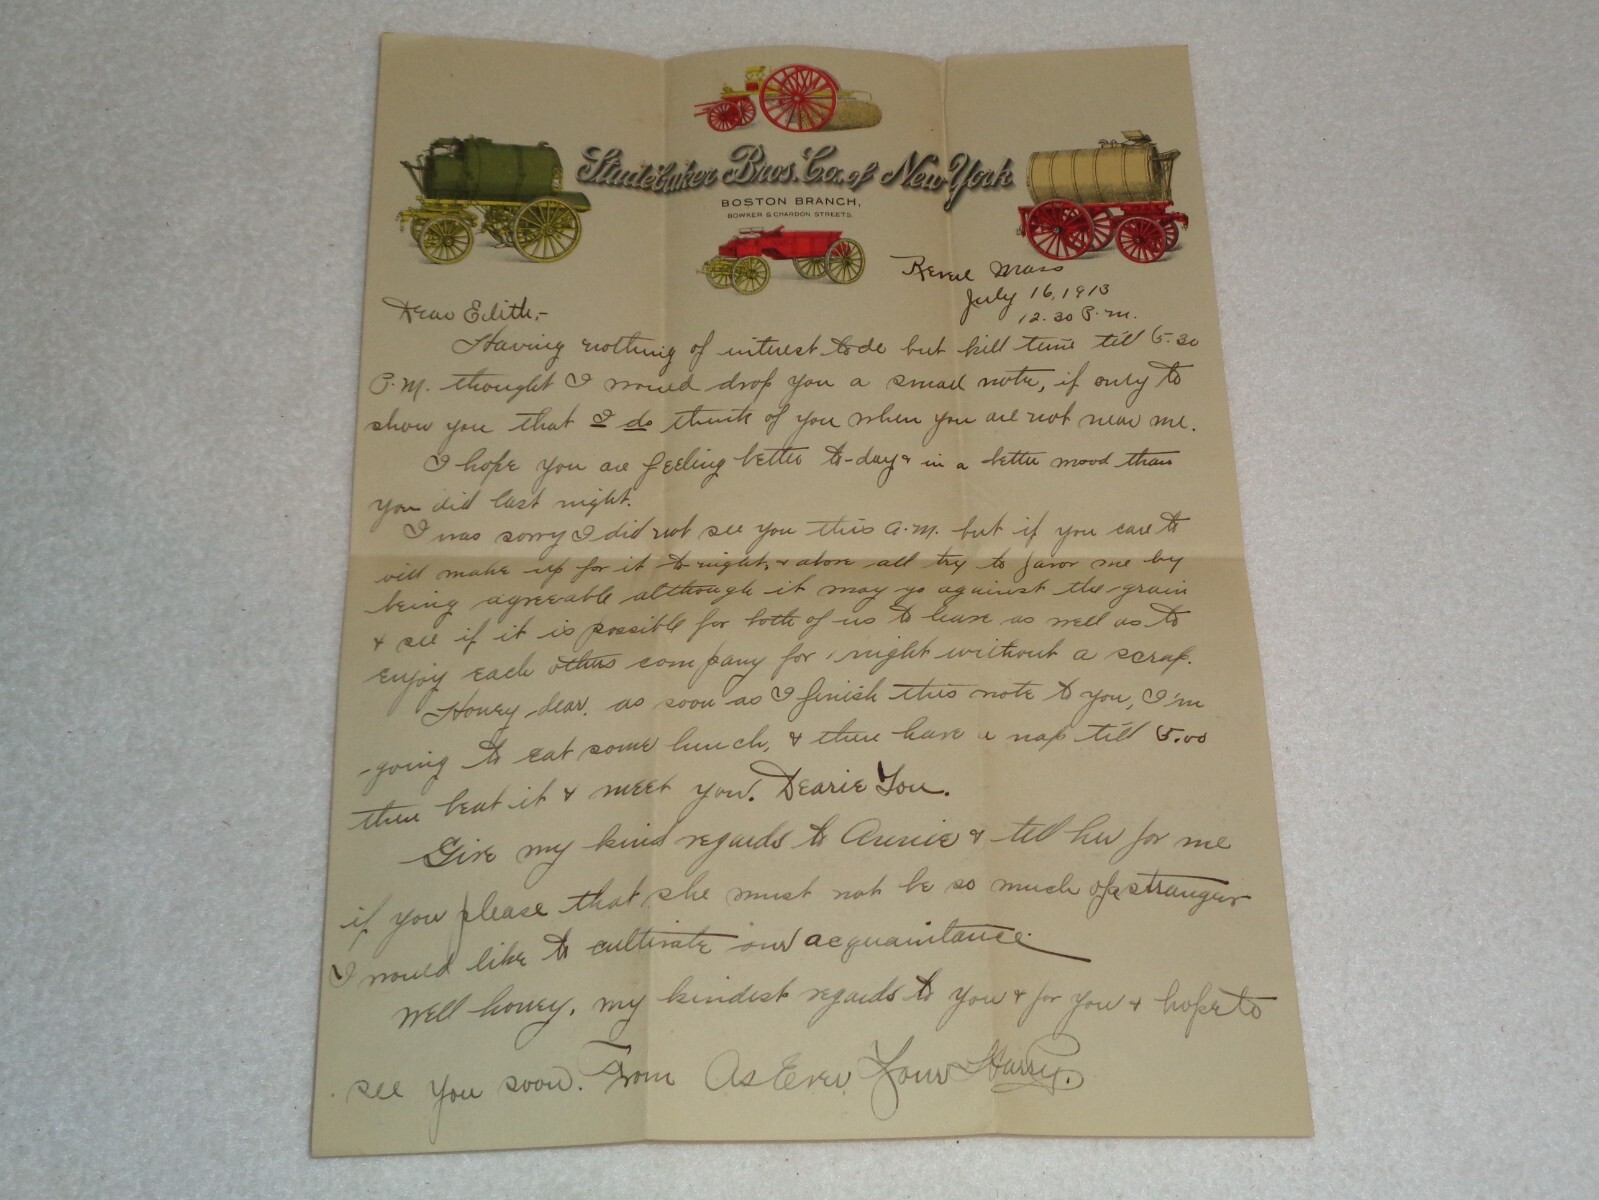 Studebaker Bros. Co. of New York
BOSTON BRANCH,
BOWKER & CHARDON STREETS.
Mass
July 16, 1913
12.30 P.M.
Dear Edith,-
Having nothing of interest to do but kill time till 5.30
P.M. thought I would drop you a small note, if only to
show you that I do think of you when you are not near me.
I hope you are feeling better to-day & in a better mood than
you did last night.
I was sorry I did not see you this A.M. but if you care to
will make up for it to-night, & above all try to favor me by
being agreeable although it may go against the grain
& see if it is possible for both of us to leave as well as to
enjoy each others company for 1 night without a scrap.
Honey-dear, as soon as I finish this note to you, I'm
going to eat some lunch, & then have a nap till 5.00
then beat it & meet you. Dearie You.
Give my kind regards to Annie & tell her for me
if you please that she must not be so much of a stranger
I would like to cultivate our acquaintance.
Well honey, my kindest regards to you & for you & hope to
see you soon. From As Ever Your Harry.